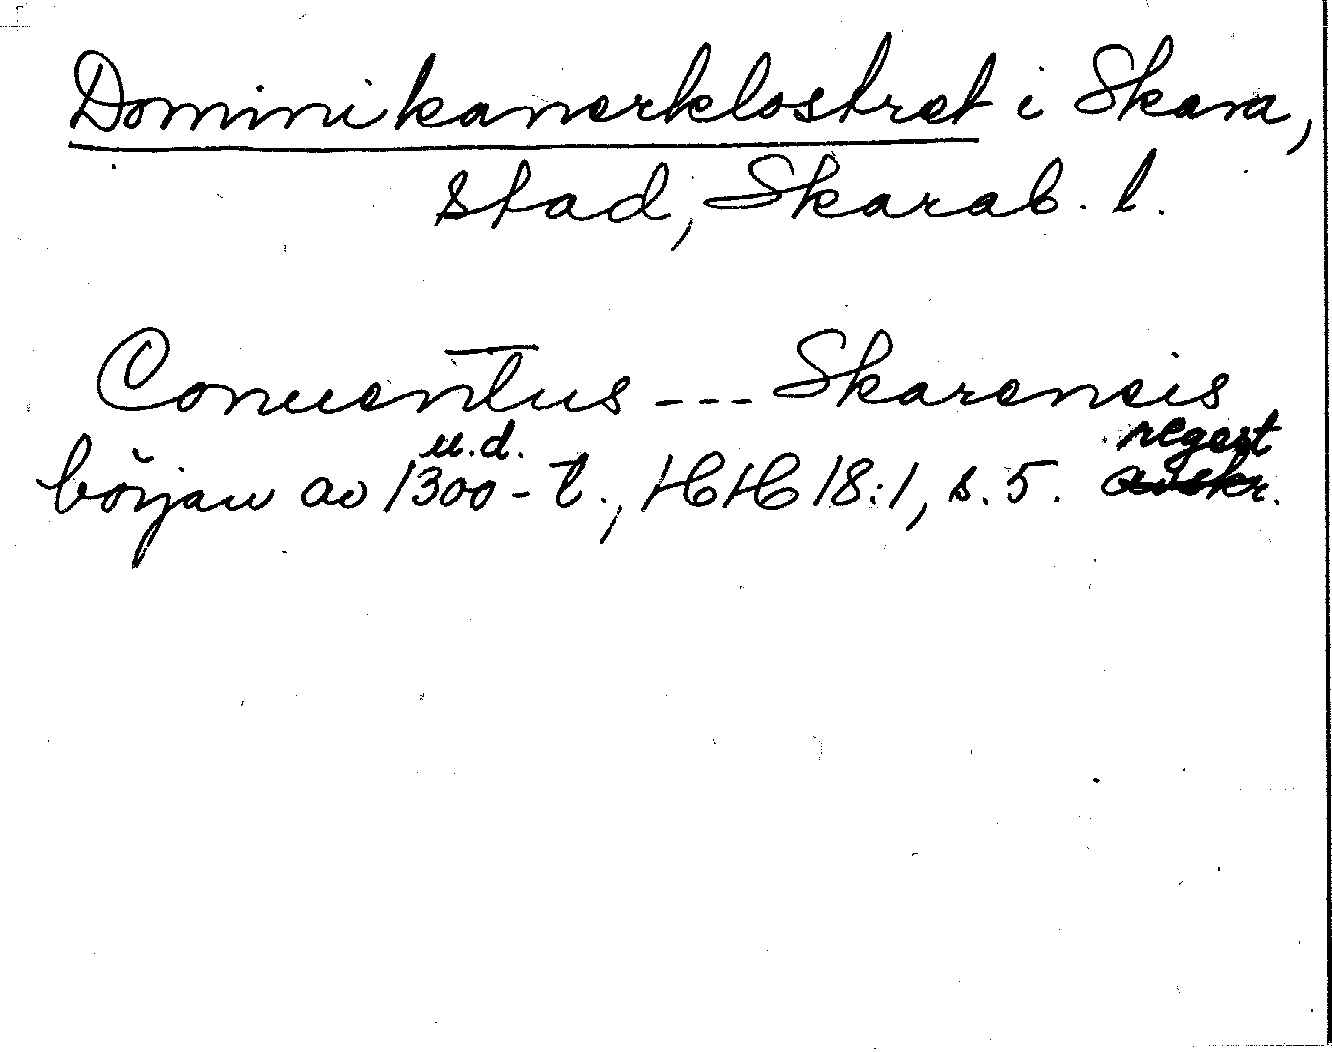 Dominikanerklostret i Skara,
stad, Skarab. l.
Conuentus --- Skarensis
u.d. regest
början av 1300-t., HH 18:1, s. 5. avskr.